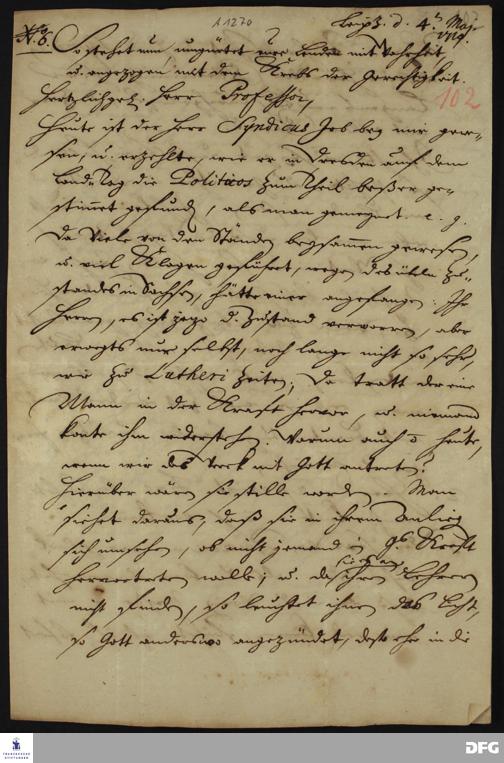 A 1270
Leipz. d. 4. Maj.
N. 8.
So stehet nun, umgürtet eure Lenden mit Wahrheit
u. angezogen mit dem Krebs der Gerechtigkeit.
102
Herr Professor,
Heute ist der Herr Syndicus Job bey mir gewe-
sen, u. erzehlte, wie er in Dresden auf dem
Land-Tag die Politicos zum Theil beßer ge-
stimmet gefunden, als man gemeynet. e. g.
Da viele von den Ständen beysammen gewesen,
u. viel Klagen geführet, wegen des übeln Zu-
standes in Sachsen, hätte einer angefangen: Ihr
Herren, es ist jezo d. Zustand verworren, aber
nur selbst, noch lange nicht so sehr,
wie zu Lutheri Zeiten; Da tratt der eine
Mann in der Krafft hervor, u. niemand
konte ihm widerstehen. Warum auch heute,
wenn wir das Werck mit Gott antreten?
Hierüber wären sie stille worden. Man
siehet daraus, daß sie in ihrem Anlieg
sich umsehen, ob nicht jemand in Krafft
hervortreten wolle; u. da sie es an ihren Lehrern
nicht finden, so leuchtet ihnen das Licht,
so Gott anderswo angezündet, desto eher in die
FRANCKESCHE STIFTUNGEN
DFG